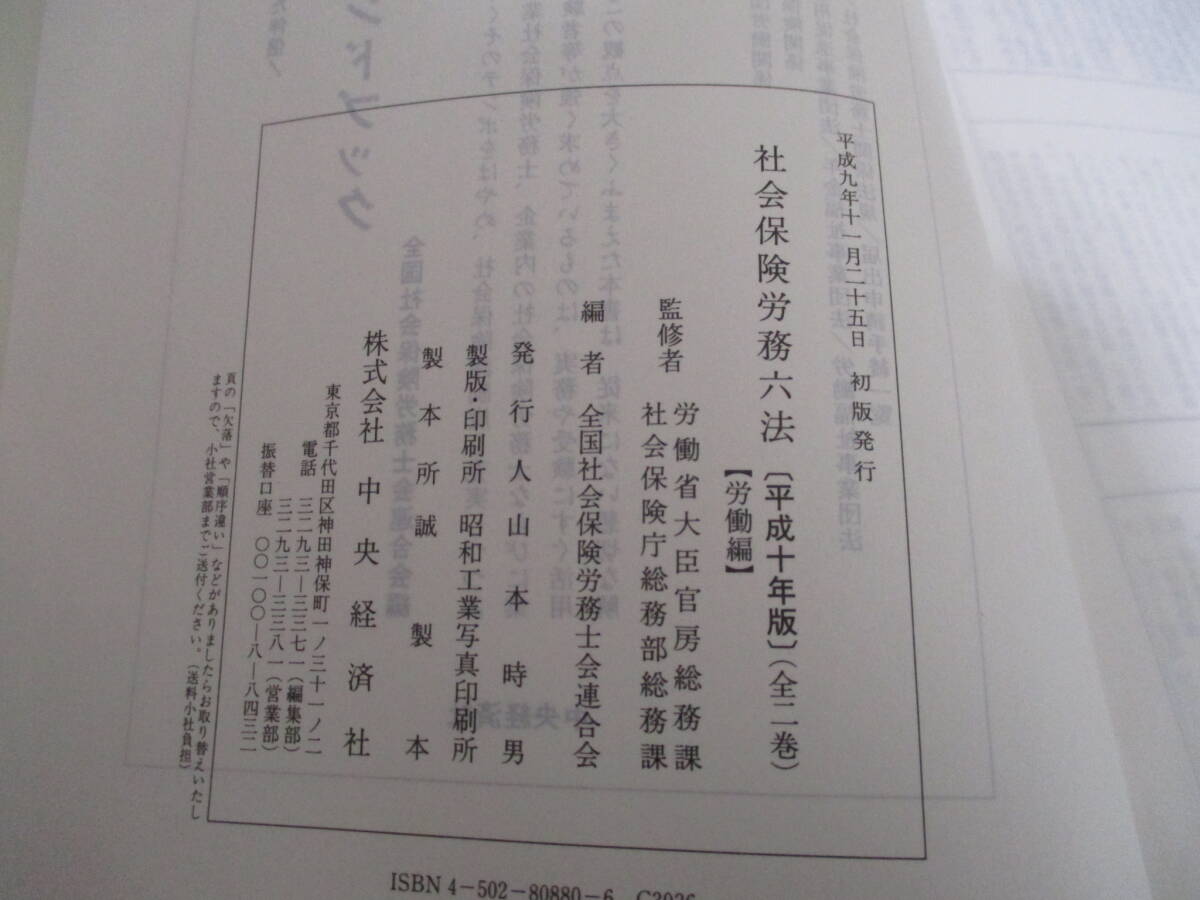 平成九年十一月二十五日　初版発行
社会保険労務六法〔平成十年版〕（全二巻）
【労働編】
監修者　労働省大臣官房総務課
社会保険庁総務部総務課
編者　全国社会保険労務士会連合会
発行人　山本時男
製版・印刷所　昭和工業写真印刷所
製本所　誠製本
株式会社　中央経済社
東京都千代田区神田神保町一ノ三十一ノ二
電話　三二九三―三三七一（編集部）
三二九三―三三八一（営業部）
振替口座　〇〇一〇〇―八―八四三二
頁の「欠落」や「順序違い」などがありましたらお取り替えいたし
ますので、小社営業部までご送付ください。（送料小社負担）
ISBN 4-502-80880-6